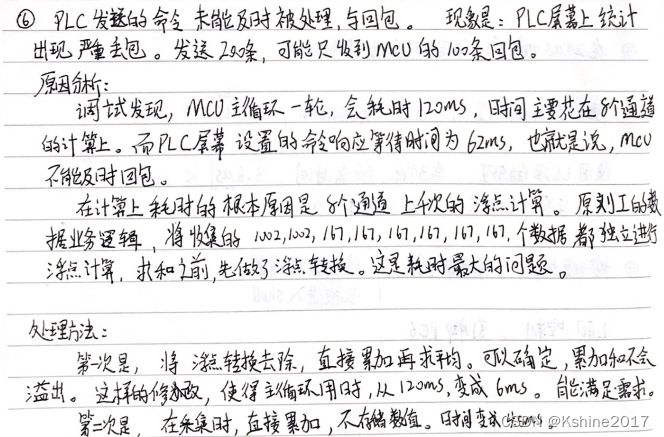 ⑥ PLC发送的命令 未能及时被处理,与回包。 现象是:PLC屏幕上统计
出现严重丢包。发送200条,可能只收到MCU的100条回包。
原因分析:
调试发现,MCU主循环一轮,会耗时120ms,时间主要花在8个通道
的计算上。而PLC屏幕设置的命令响应等待时间为62ms,也就是说,MCU
不能及时回包。
在计算上耗时的根本原因是8个通道上千次的浮点计算。原刘工的数
据业务逻辑,将收集的1002,1002,167,167,167,167,167,167,个数据都独立进行
浮点计算,求和之前,先做了浮点转换。这是耗时最大的问题。
处理方法:
第一次是,将浮点转换去除,直接累加再求平均。可以确定,累加和不会
溢出。这样的修改,使得主循环用时,从120ms,变成6ms。能满足需求。
第二次是,在采集时,直接累加,不存储数值。时间变
CSDN @Kshine2017